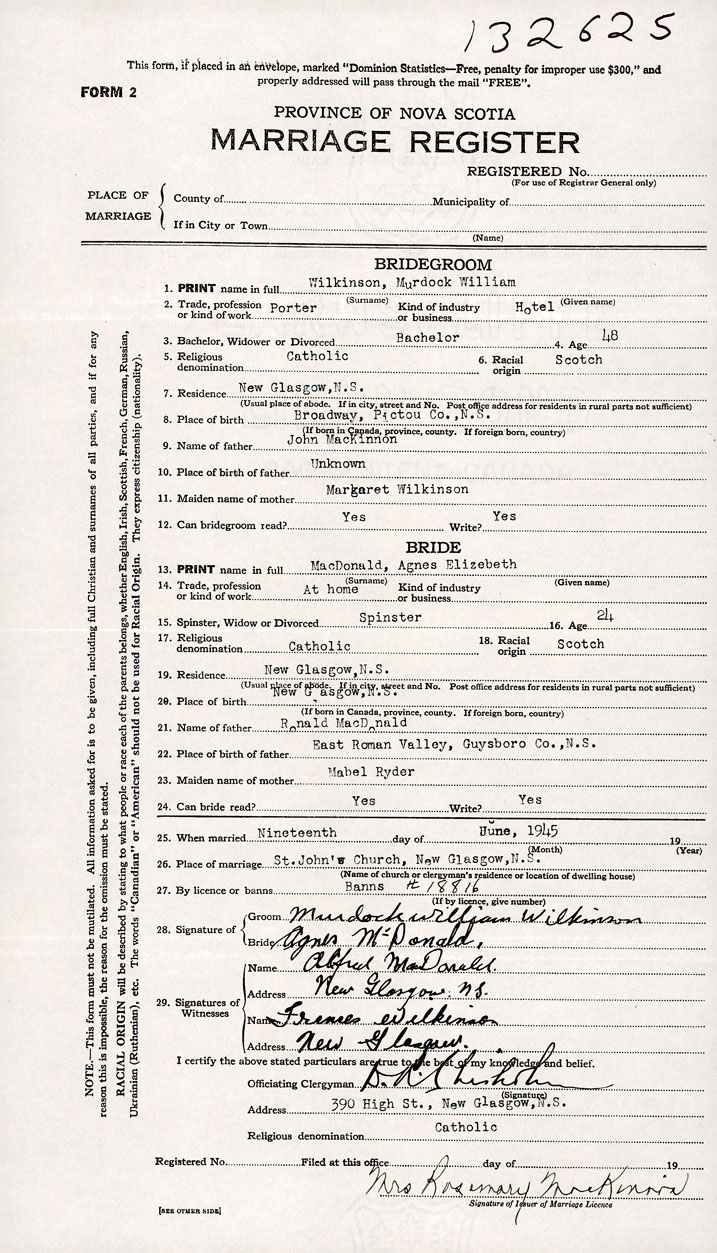 132625
This form, if placed in an envelope, marked "Dominion Statistics—Free, penalty for improper use $300," and
properly addressed will pass through the mail "FREE".
FORM 2
PROVINCE OF NOVA SCOTIA
MARRIAGE REGISTER
REGISTERED No.
(For use of Registrar General only)
PLACE OF MARRIAGE
County of Municipality of
If in City or Town
(Name)
BRIDEGROOM
1. PRINT name in full Wilkinson, Murdock William
(Surname) (Given name)
2. Trade, profession or kind of work Porter Kind of industry or business Hotel
3. Bachelor, Widower or Divorced Bachelor 4. Age 48
5. Religious denomination Catholic 6. Racial origin Scotch
7. Residence New Glasgow,N.S.
(Usual place of abode. If in city, street and No. Post office address for residents in rural parts not sufficient)
8. Place of birth Broadway, Pictou Co.,N.S.
(If born in Canada, province, county. If foreign born, country)
9. Name of father John MacKinnon
10. Place of birth of father Unknown
11. Maiden name of mother Margaret Wilkinson
12. Can bridegroom read? Yes Write? Yes
BRIDE
13. PRINT name in full MacDonald, Agnes Elizebeth
(Surname) (Given name)
14. Trade, profession or kind of work At home Kind of industry or business
15. Spinster, Widow or Divorced Spinster 16. Age 24
17. Religious denomination Catholic 18. Racial origin Scotch
19. Residence New Glasgow,N.S.
(Usual place of abode. If in city, street and No. Post office address for residents in rural parts not sufficient)
20. Place of birth New Glasgow,N.S.
(If born in Canada, province, county. If foreign born, country)
21. Name of father Ronald MacDonald
22. Place of birth of father East Roman Valley, Guysboro Co.,N.S.
23. Maiden name of mother Mabel Ryder
24. Can bride read? Yes Write? Yes
25. When married Nineteenth day of June, 1945 19
(Month) (Year)
26. Place of marriage St.John's Church, New Glasgow,N.S.
(Name of church or clergyman's residence or location of dwelling house)
27. By licence or banns Banns # 18816
(If by licence, give number)
28. Signature of
Groom Murdock william Wilkinson
Bride Agnes McDonald,
29. Signatures of Witnesses
Name Alfred MacDonald.
Address New Glasgow. N.S.
Name Frances Wilkinson
Address New Glasgow.
I certify the above stated particulars are true to the best of my knowledge and belief.
Officiating Clergyman D. R. Chisholm
(Signature)
Address 390 High St., New Glasgow,N.S.
Religious denomination Catholic
Registered No. Filed at this office day of 19
Mrs Rosemary MacKinnon
Signature of Issuer of Marriage Licence
[SEE OTHER SIDE]
NOTE.—This form must not be mutilated. All information asked for is to be given, including full Christian and surnames of all parties, and if for any
reason this is impossible, the reason for the omission must be stated.
RACIAL ORIGIN will be described by stating to what people or race each of the parents belongs, whether English, Irish, Scottish, French, German, Russian,
Ukrainian (Ruthenian), etc. The words "Canadian" or "American" should not be used for Racial Origin. They express citizenship (nationality).